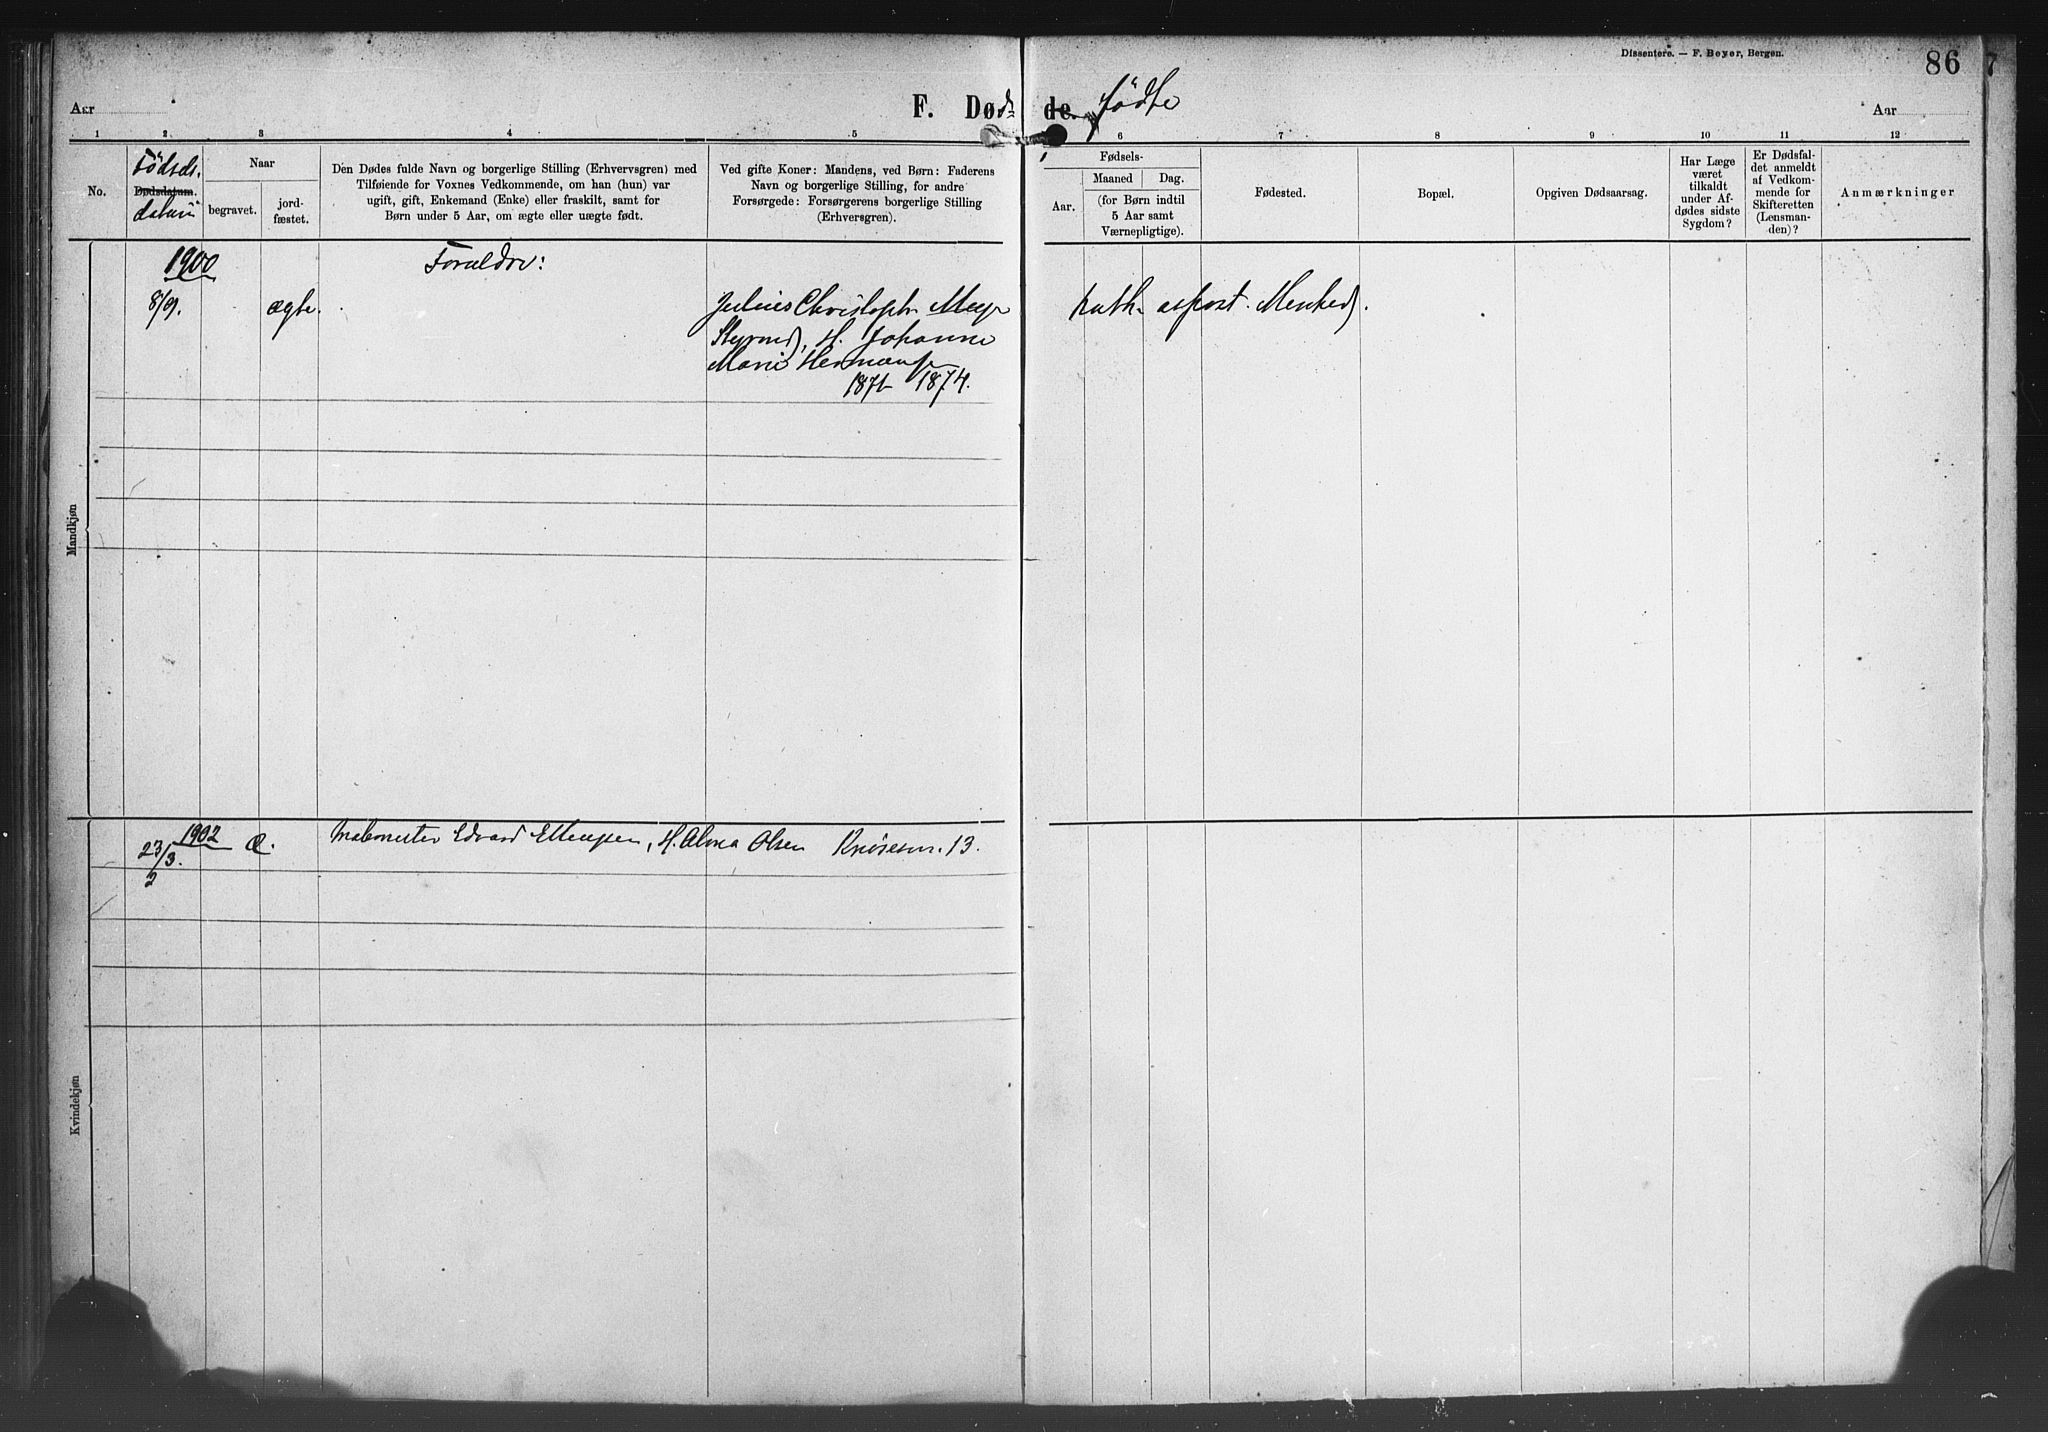 Dissentere. — F. Beyer, Bergen.
86
7
Aar
F. Døde.
dødfødte
Aar
1 2 3 4 5 6 7 8 9 10 11 12
No.
Födsels-
Dødsdatum.
datum
Naar
begravet.
jord-
fæstet.
Den Dødes fulde Navn og borgerlige Stilling (Erhvervsgren) med
Tilføiende for Voxnes Vedkommende, om han (hun) var
ugift, gift, Enkemand (Enke) eller fraskilt, samt for
Børn under 5 Aar, om ægte eller uægte født.
Ved gifte Koner: Mandens, ved Børn: Faderens
Navn og borgerlige Stilling, for andre
Forsørgede: Forsørgerens borgerlige Stilling
(Erhversgren).
Fødsels-
Aar.
Maaned
Dag.
(for Børn indtil
5 Aar samt
Værnepligtige).
Fødested.
Bopæl.
Opgiven Dødsaarsag.
Har Læge
været
tilkaldt
under Af-
dødes sidste
Sygdom?
Er Dødsfal-
det anmeldt
af Vedkom-
mende for
Skifteretten
(Lensman-
den)?
Anmærkninger
Mandkjøn
1900
Forældre:
8/9. ægte. Julius Christoph Meyer
Styrmd, H. Johanne
Marie Hermansen
1871 1874.
kath. apost. Menhed.
Kvindekjøn
1902
23/3. Æ. Malermester Edvard Ellengsen, H. Alma Olsen Knösesm. 13.
2